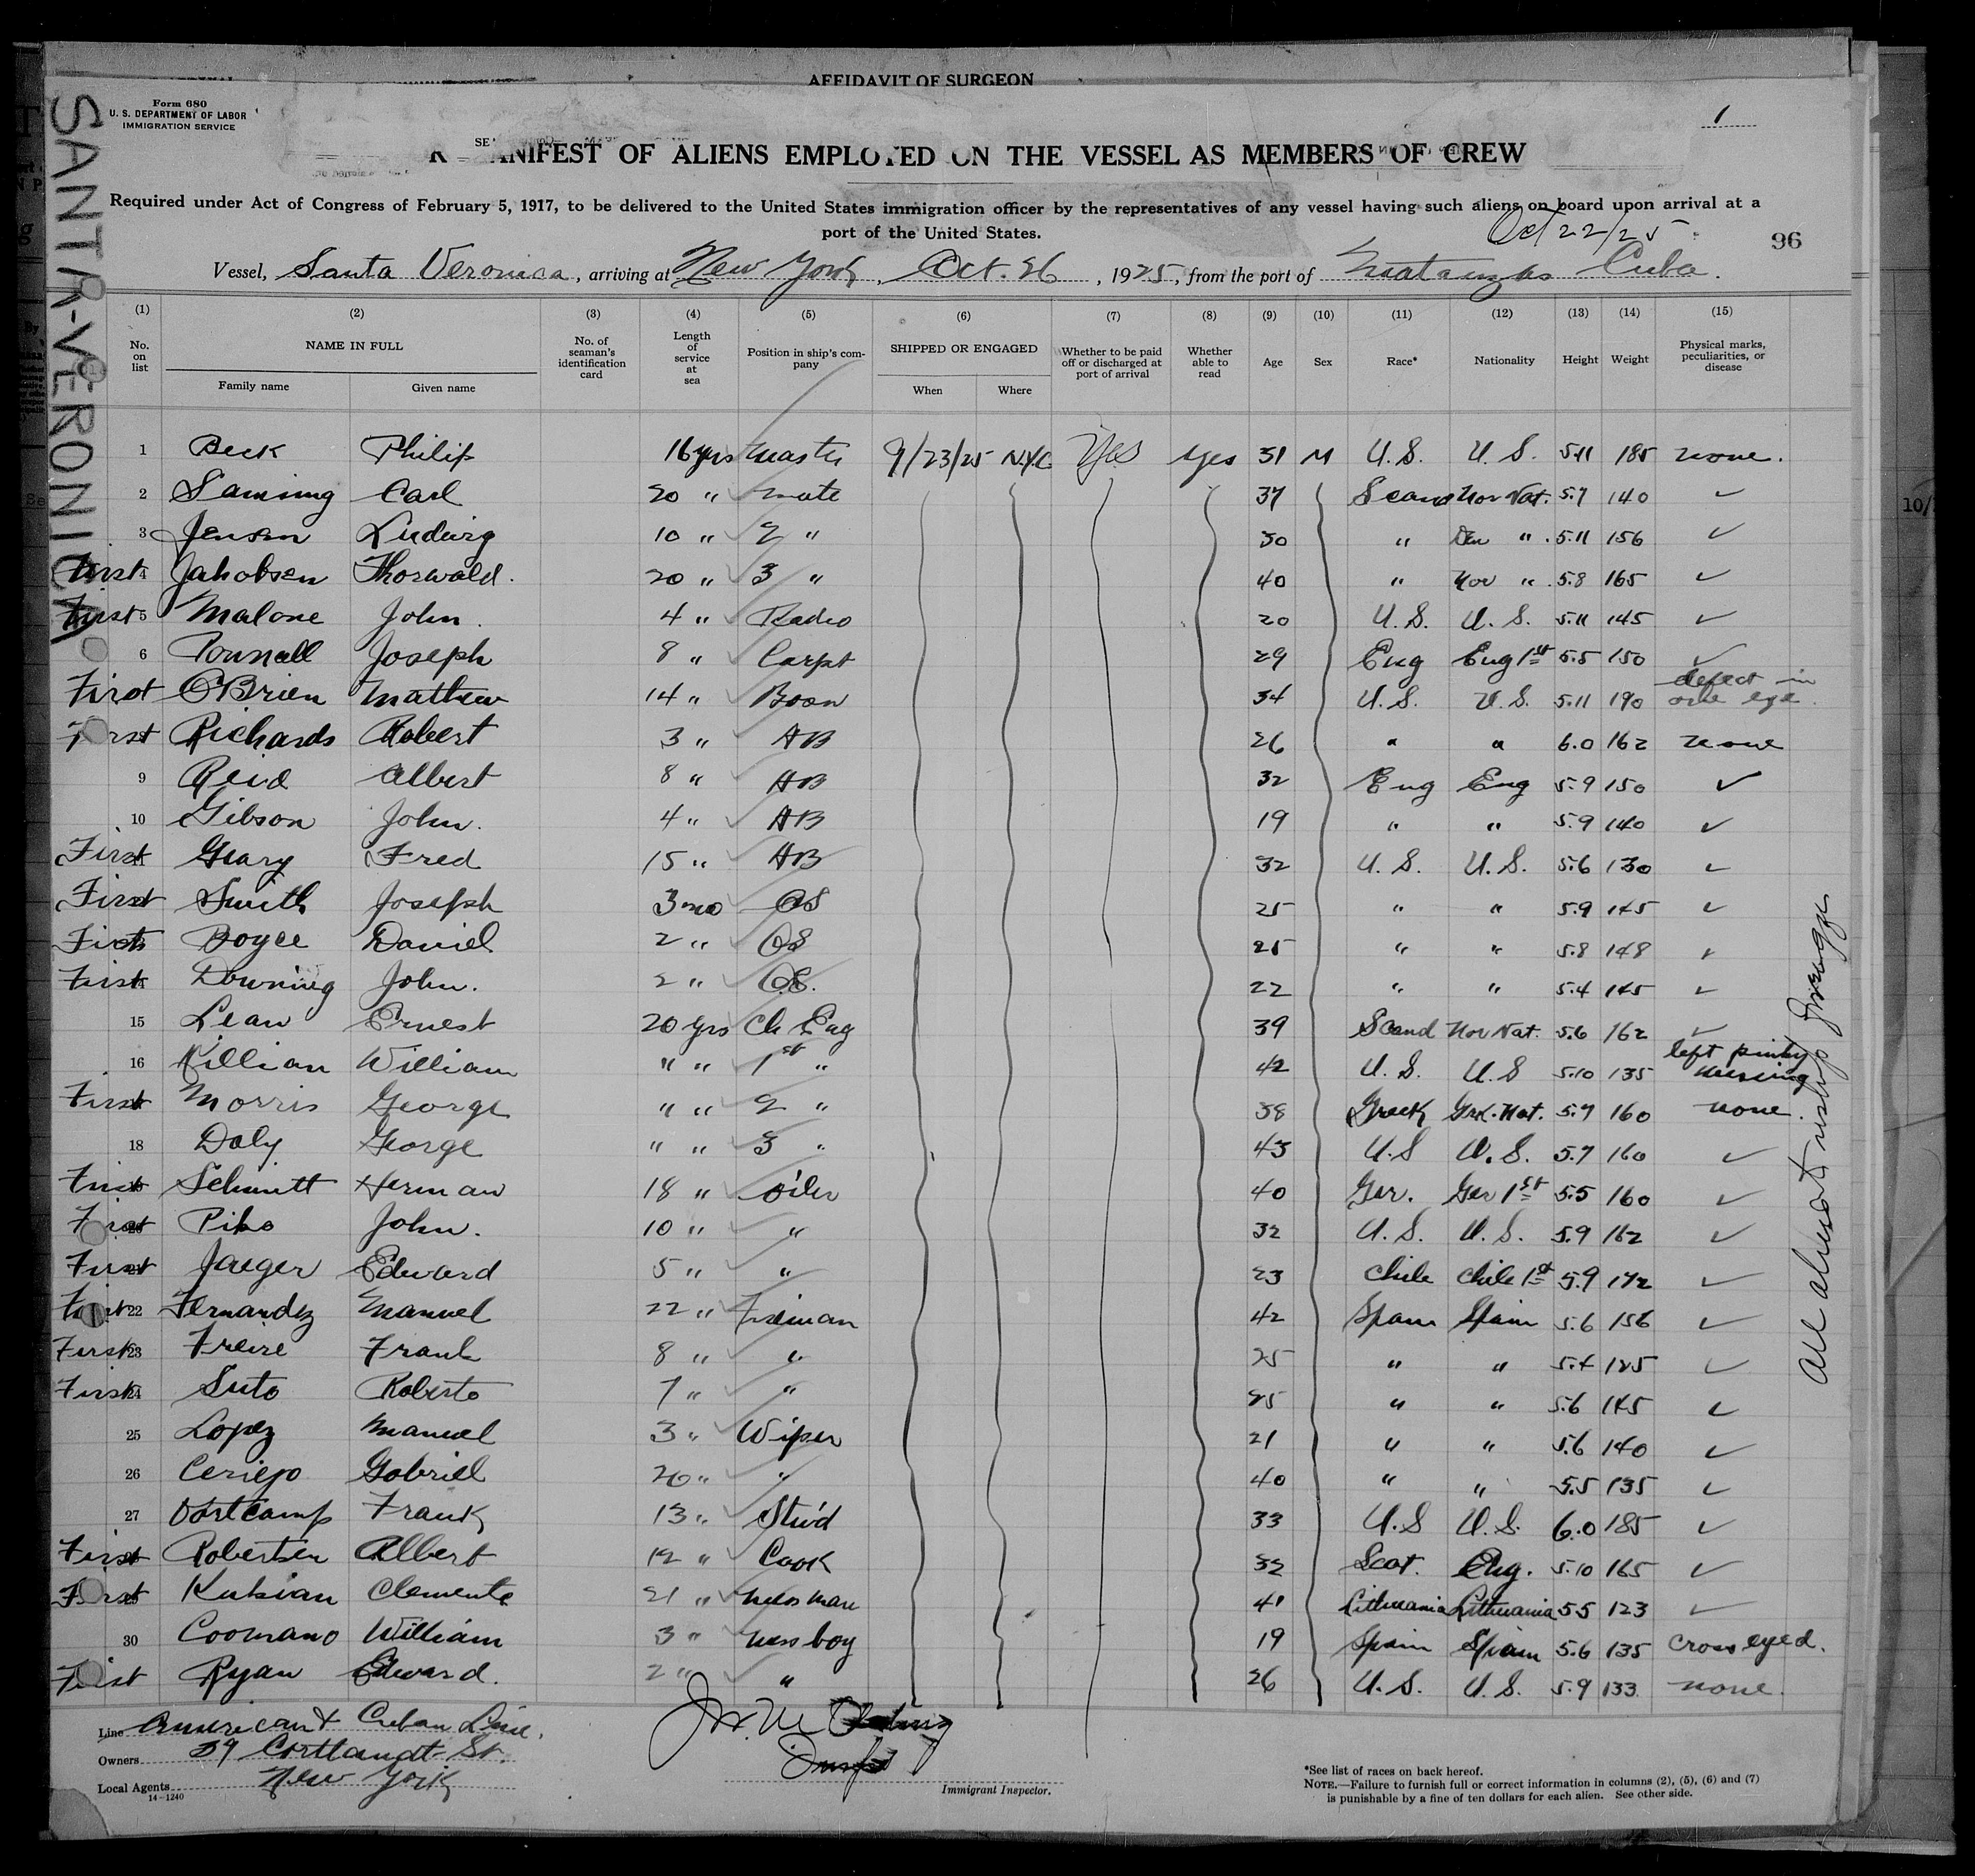 AFFIDAVIT OF SURGEON
SANTA-VERONICA
Form 680
U. S. DEPARTMENT OF LABOR
IMMIGRATION SERVICE
1
MANIFEST OF ALIENS EMPLOYED ON THE VESSEL AS MEMBERS OF CREW
Required under Act of Congress of February 5, 1917, to be delivered to the United States immigration officer by the representatives of any vessel having such aliens on board upon arrival at a
port of the United States.
Oct 22/25
96
Vessel, Santa Veronica, arriving at New York, Oct. 26, 1925, from the port of Matanzas Cuba.
(1) (2) (3) (4) (5) (6) (7) (8) (9) (10) (11) (12) (13) (14) (15)
No. on list NAME IN FULL No. of seaman's identification card Length of service at sea Position in ship's company SHIPPED OR ENGAGED Whether to be paid off or discharged at port of arrival Whether able to read Age Sex Race* Nationality Height Weight Physical marks, peculiarities, or disease
Family name Given name When Where
1 Beck Philip 16 yrs Master 9/23/25 N.Y.C. Yes yes 31 M U.S. U.S. 5.11 185 none.
2 Carl 20 " mate 37 Scand Nor Nat. 5.7 140 ✓
3 Jensen Ludwig 10 " 2 " 30 " Den " 5.11 156 ✓
First 4 Jakobsen Thorwald. 20 " 3 " 40 " Nor " 5.8 165 ✓
First 5 Malone John. 4 " Radio 20 U.S. U.S. 5.11 145 ✓
6 Pownall Joseph 8 " Carpt 29 Eng Eng 1st 5.5 150 ✓
First O'Brien Mathew 14 " Bosn 34 U.S. U.S. 5.11 190 defect in one eye.
First Richards Robert 3 " AB 26 " " 6.0 162 none
9 Reid Albert 8 " AB 32 Eng Eng 5.9 150 ✓
10 Gibson John. 4 " AB 19 " " 5.9 140 ✓
First Geary Fred 15 " AB 32 U.S. U.S. 5.6 130 ✓
First Smith Joseph 3 mo OS 25 " " 5.9 145 ✓
First Boyce Daniel 2 " OS 25 " " 5.8 148 ✓
First Downing John. 2 " O.S. 22 " " 5.4 145 ✓
15 Lean Ernest 20 yrs Ch Eng 39 Scand Nor Nat. 5.6 162 ✓
16 Killian William " " 1st " 42 U.S. U.S 5.10 135 left pinky missing
First Morris George " " 2 " 38 Greek Grk. Nat. 5.7 160 none.
18 Daly George " " 3 " 43 U.S U.S. 5.7 160 ✓
First Schmitt Herman 18 " oiler 40 Ger. Ger 1st 5.5 160 ✓
First Piko John. 10 " " 32 U.S. U.S. 5.9 162 ✓
First Jaeger Edward 5 " " 23 Chile Chile 1st 5.9 172 ✓
First 22 Fernandez Manuel 22 " Fireman 42 Spain Spain 5.6 156 ✓
First 23 Freire Frank 8 " " 25 " " 5.4 125 ✓
First 24 Suto Roberto 7 " " 25 " " 5.6 145 ✓
25 Lopez Manuel 3 " Wiper 21 " " 5.6 140 ✓
26 Gabriel 20 " " 40 " " 5.5 135 ✓
27 Oostcamp Frank 13 " Stwd 33 U.S U.S. 6.0 185 ✓
First Robertsen Albert 12 " Cook 32 Scot. Eng. 5.10 165 ✓
First Kubian Clemente 21 " Mess man 41 Lithuania Lithuania 5.5 123 ✓
30 Coomano William 3 " Mess boy 19 Spain Spain 5.6 135 cross eyed.
First Ryan Edward. 2 " " 26 U.S. U.S. 5.9 133 none.
Line American & Cuban Line.
Owners 39 Cortlandt St.
Local Agents New York
14-1240
Immigrant Inspector.
*See list of races on back hereof.
NOTE.—Failure to furnish full or correct information in columns (2), (5), (6) and (7)
is punishable by a fine of ten dollars for each alien. See other side.